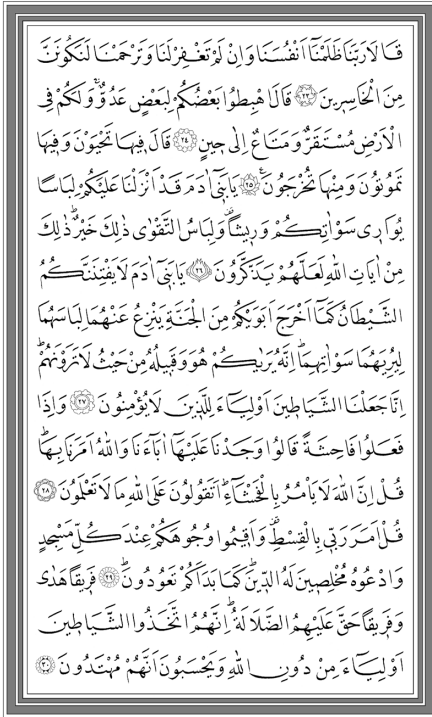 قَالَا رَبَّنَا ظَلَمْنَا اَنْفُسَنَا وَاِنْ لَمْ تَغْفِرْ لَنَا وَتَرْحَمْنَا لَنَكُونَنَّ
مِنَ الْخَاسِرٖينَ ﴿٢٣﴾ قَالَ اهْبِطُوا بَعْضُكُمْ لِبَعْضٍ عَدُوٌّۚ وَلَكُمْ فِى
الْاَرْضِ مُسْتَقَرٌّ وَمَتَاعٌ اِلٰى حٖينٍ ﴿٢٤﴾ قَالَ فٖيهَا تَحْيَوْنَ وَفٖيهَا
تَمُوتُونَ وَمِنْهَا تُخْرَجُونَࣖ ﴿٢٥﴾ يَا بَنٖٓى اٰدَمَ قَدْ اَنْزَلْنَا عَلَيْكُمْ لِبَاسًا
يُوَارٖى سَوْاٰتِكُمْ وَرٖيشًاۜ وَلِبَاسُ التَّقْوٰى ذٰلِكَ خَيْرٌۜ ذٰلِكَ
مِنْ اٰيَاتِ اللّٰهِ لَعَلَّهُمْ يَذَّكَّرُونَ ﴿٢٦﴾ يَا بَنٖٓى اٰدَمَ لَا يَفْتِنَنَّكُمُ
الشَّيْطَانُ كَمَٓا اَخْرَجَ اَبَوَيْكُمْ مِنَ الْجَنَّةِ يَنْزِعُ عَنْهُمَا لِبَاسَهُمَا
لِيُرِيَهُمَا سَوْاٰتِهِمَاۜ اِنَّهُ يَرٰيكُمْ هُوَ وَقَبٖيلُهُ مِنْ حَيْثُ لَا تَرَوْنَهُمْۜ
اِنَّا جَعَلْنَا الشَّيَاطٖينَ اَوْلِيَٓاءَ لِلَّذٖينَ لَا يُؤْمِنُونَ ﴿٢٧﴾ وَاِذَا
فَعَلُوا فَاحِشَةً قَالُوا وَجَدْنَا عَلَيْهَٓا اٰبَٓاءَنَا وَاللّٰهُ اَمَرَنَا بِهَاۜ
قُلْ اِنَّ اللّٰهَ لَا يَاْمُرُ بِالْفَحْشَٓاءِۜ اَتَقُولُونَ عَلَى اللّٰهِ مَا لَا تَعْلَمُونَ ﴿٢٨﴾
قُلْ اَمَرَ رَبّٖى بِالْقِسْطِ وَاَقٖيمُوا وُجُوهَكُمْ عِنْدَ كُلِّ مَسْجِدٍ
وَادْعُوهُ مُخْلِصٖينَ لَهُ الدّٖينَۜ كَمَا بَدَاَكُمْ تَعُودُونَۜ ﴿٢٩﴾ فَرٖيقًا هَدٰى
وَفَرٖيقًا حَقَّ عَلَيْهِمُ الضَّلَالَةُۜ اِنَّهُمُ اتَّخَذُوا الشَّيَاطٖينَ
اَوْلِيَٓاءَ مِنْ دُونِ اللّٰهِ وَيَحْسَبُونَ اَنَّهُمْ مُهْتَدُونَ ﴿٣٠﴾